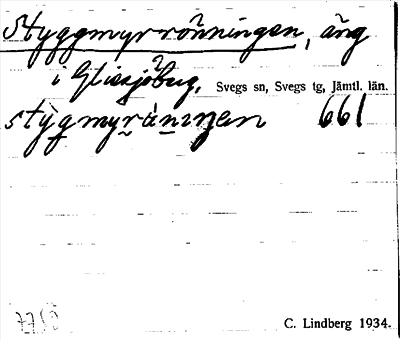 Styggmyrrönningen, äng
i Glissjöberg. Svegs sn, Svegs tg, Jämtl. län.
661
C. Lindberg 1934.